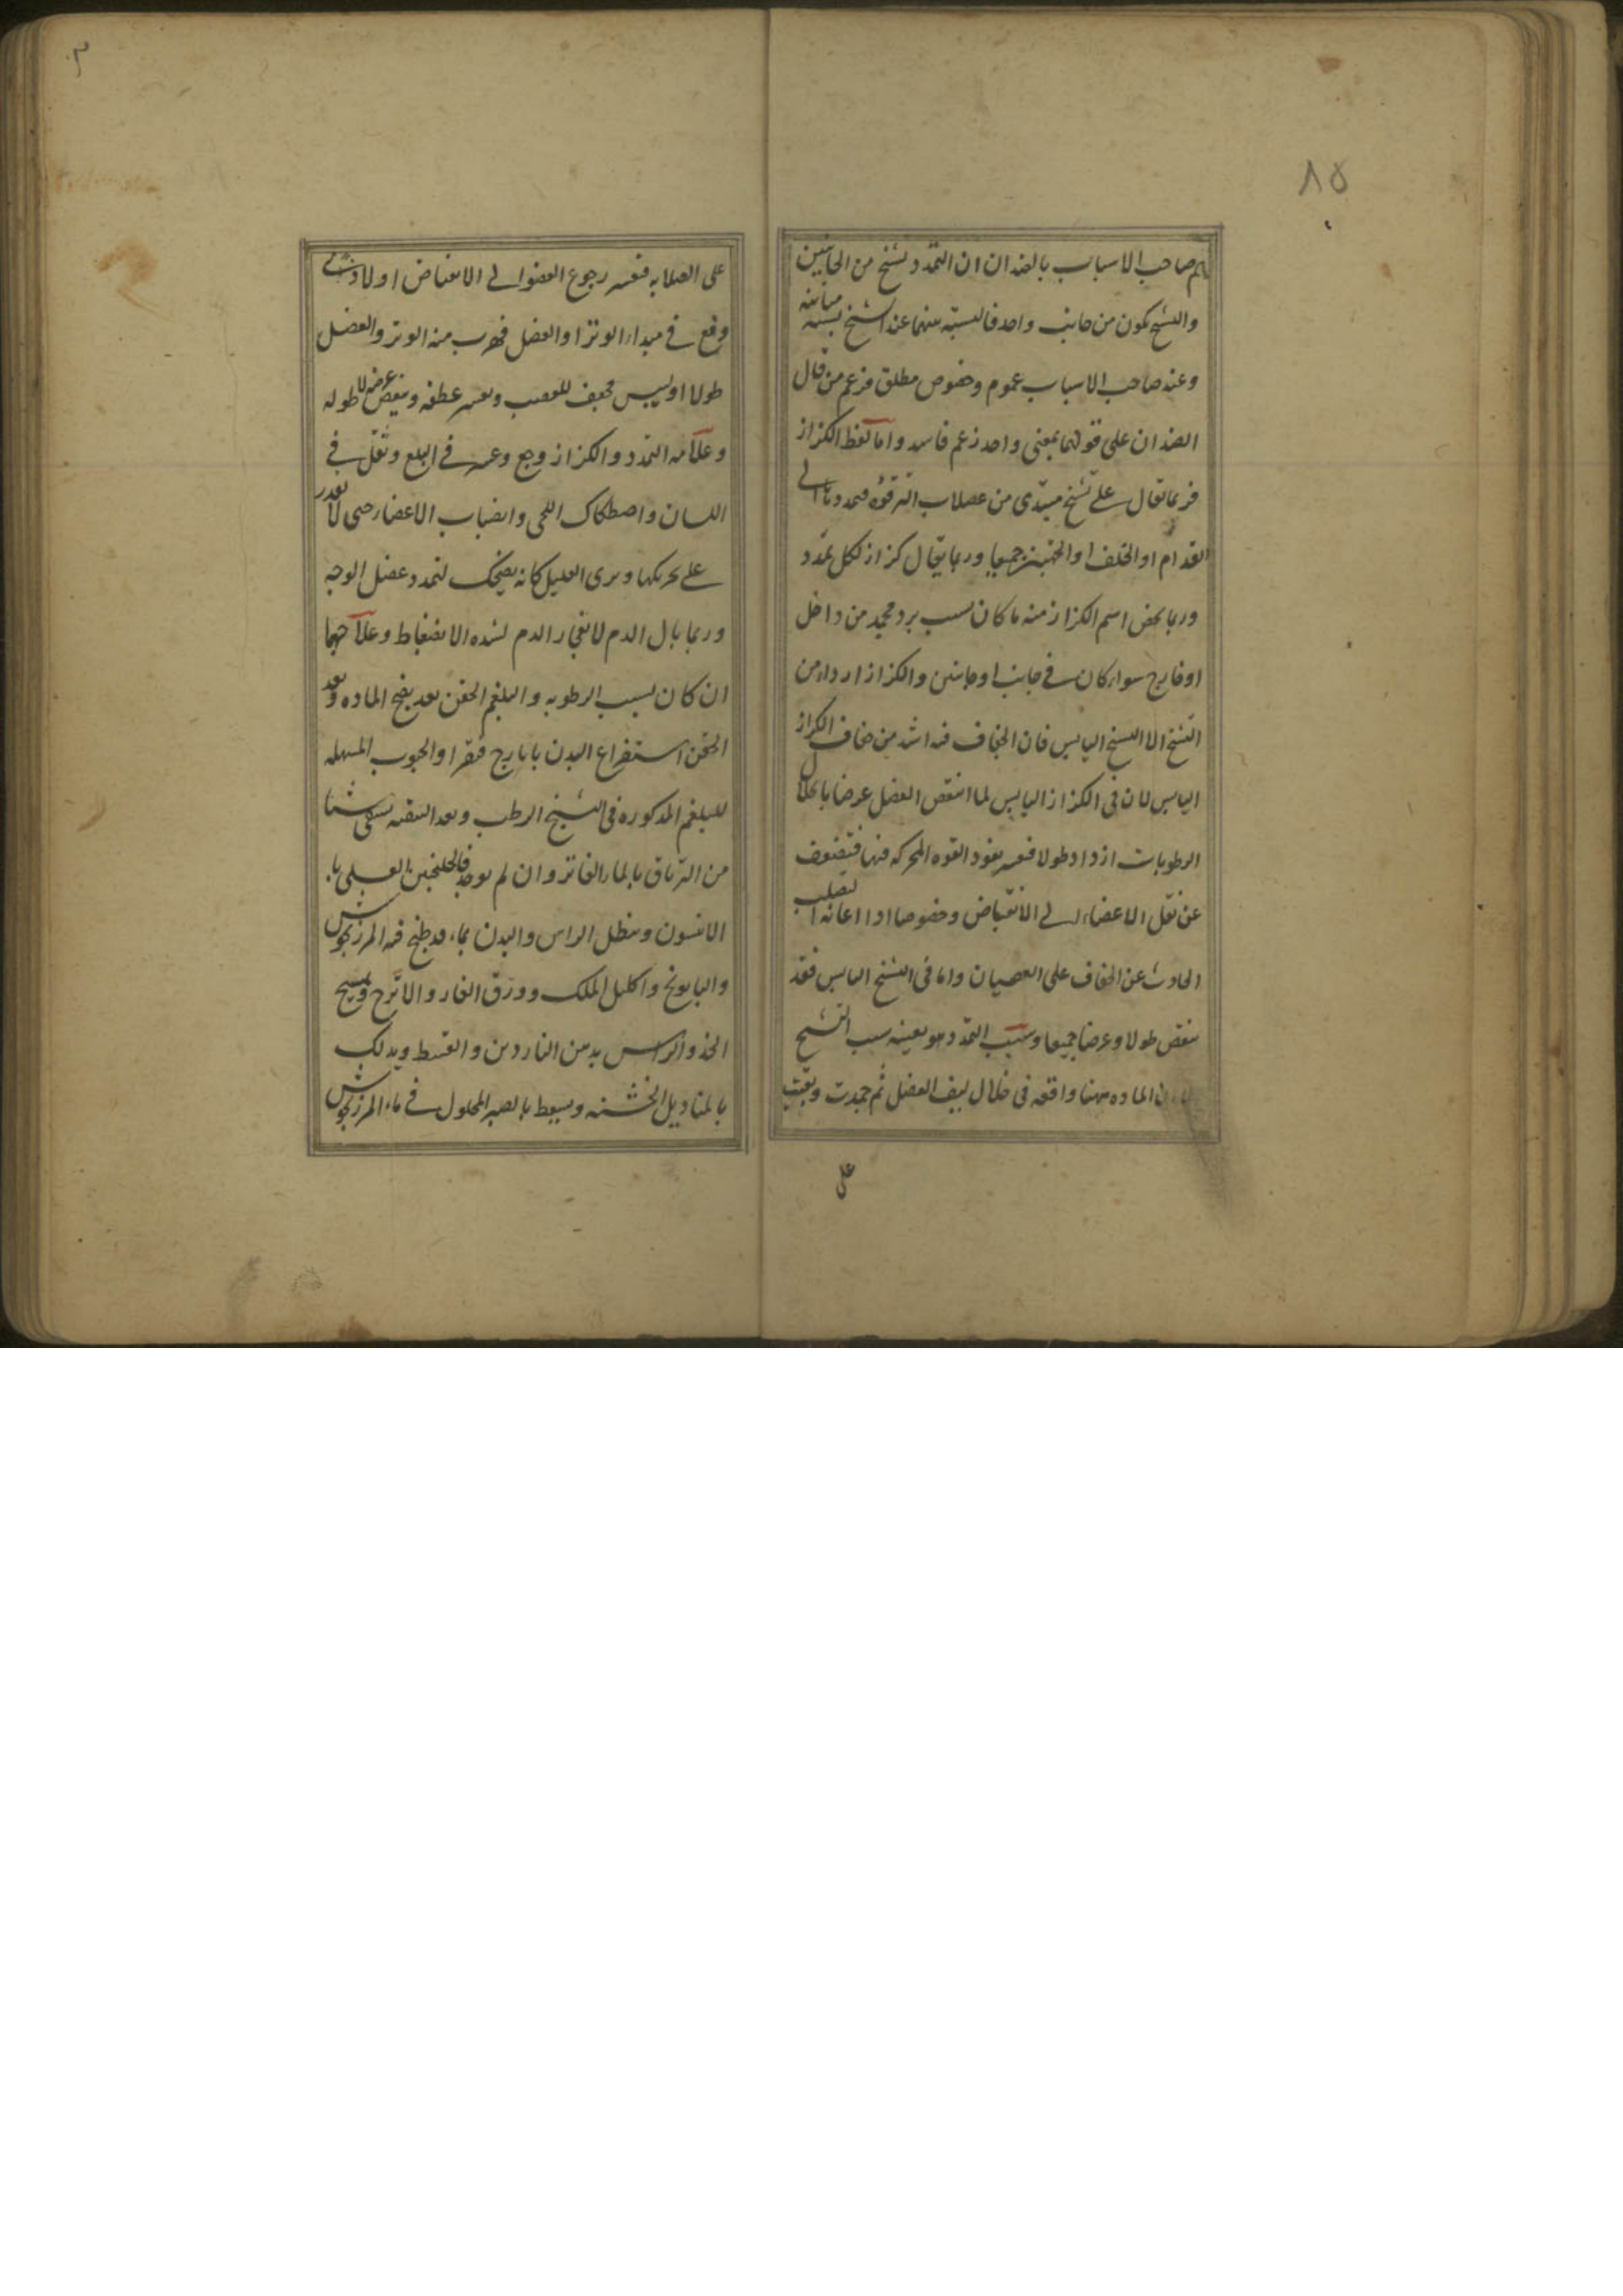 ٨٥
صاحب الاسباب بالضدان ان التمدد تشنج من الجانبين
والتشنج يكون من جانب واحد فالنسبة بينهما عند الشيخ نسبة مباينة
وعند صاحب الاسباب عموم وخصوص مطلق فزعم من قال
الضدان على قولهما بمعنى واحد زعم فاسد واما لفظ الكزاز
فربما يقال على تشنج مبتدئ من عضلات الترقوة فيمددها الى
القدام او الخلف او الجهتين جميعا وربما يقال كزاز لكل تمدد
وربما يخص اسم الكزاز منه ما كان بسبب برد مجمد من داخل
او خارج سواء كان في جانب او جانبين والكزاز اردا من
التشنج الا التشنج اليابس فان الجفاف فيه اشد من جفاف الكزاز
اليابس لان في الكزاز اليابس لما انتقص العضل عرضا بانحلال
الرطوبات ازداد طولا فعسر نفوذ القوة المحركة فيها فتضعف
عن نقل الاعضاء الى الانقباض وخصوصا اذا اعانه التصلب
الحادث عن الجفاف على العصيان واما في التشنج اليابس فقد
ينقص طولا وعرضا جميعا وسبب التمدد هو بعينه سبب التشنج
المادة ههنا واقعة في خلال ليف العضل ثم جمدت وبقيت
على
على الصلابة فعسر رجوع العضو الى الانقباض اولا
وقع في مبداء الوتر او العضل فهرب منه الوتر والعضل
طولا او ليبس مجفف للعصب وتعسر عطفه وينقص عرضه لا طوله
وعلامة التمدد والكزاز وجع وعسر في البلع وثقل في
اللسان واصطكاك اللحى وانصباب الاعضاء حتى لا يقدر
على تحريكها ويرى العليل كانه يضحك لتمدد عضل الوجه
وربما بال الدم لانفجار الدم لشدة الانضغاط وعلاجهما
ان كان بسبب الرطوبة والبلغم الحقن بعد نضج المادة وبعد
الحقن استفراغ البدن بايارج فيقرا والحبوب المسهلة
للبلغم المذكورة في التشنج الرطب وبعد التنقية يسقى شيئا
من الترياق بالماء الفاتر وان لم يوجد فالجلنجبين العسلي بماء
الانيسون وينطل الراس والبدن بماء قد طبخ فيه المرزنجوش
والبابونج واكليل الملك وورق الغار والاترج ويمسح
الخد والراس بدهن الناردين والقسط ويدلك
بالمناديل الخشنة ويسعط بالصبر المحلول في ماء المرزنجوش